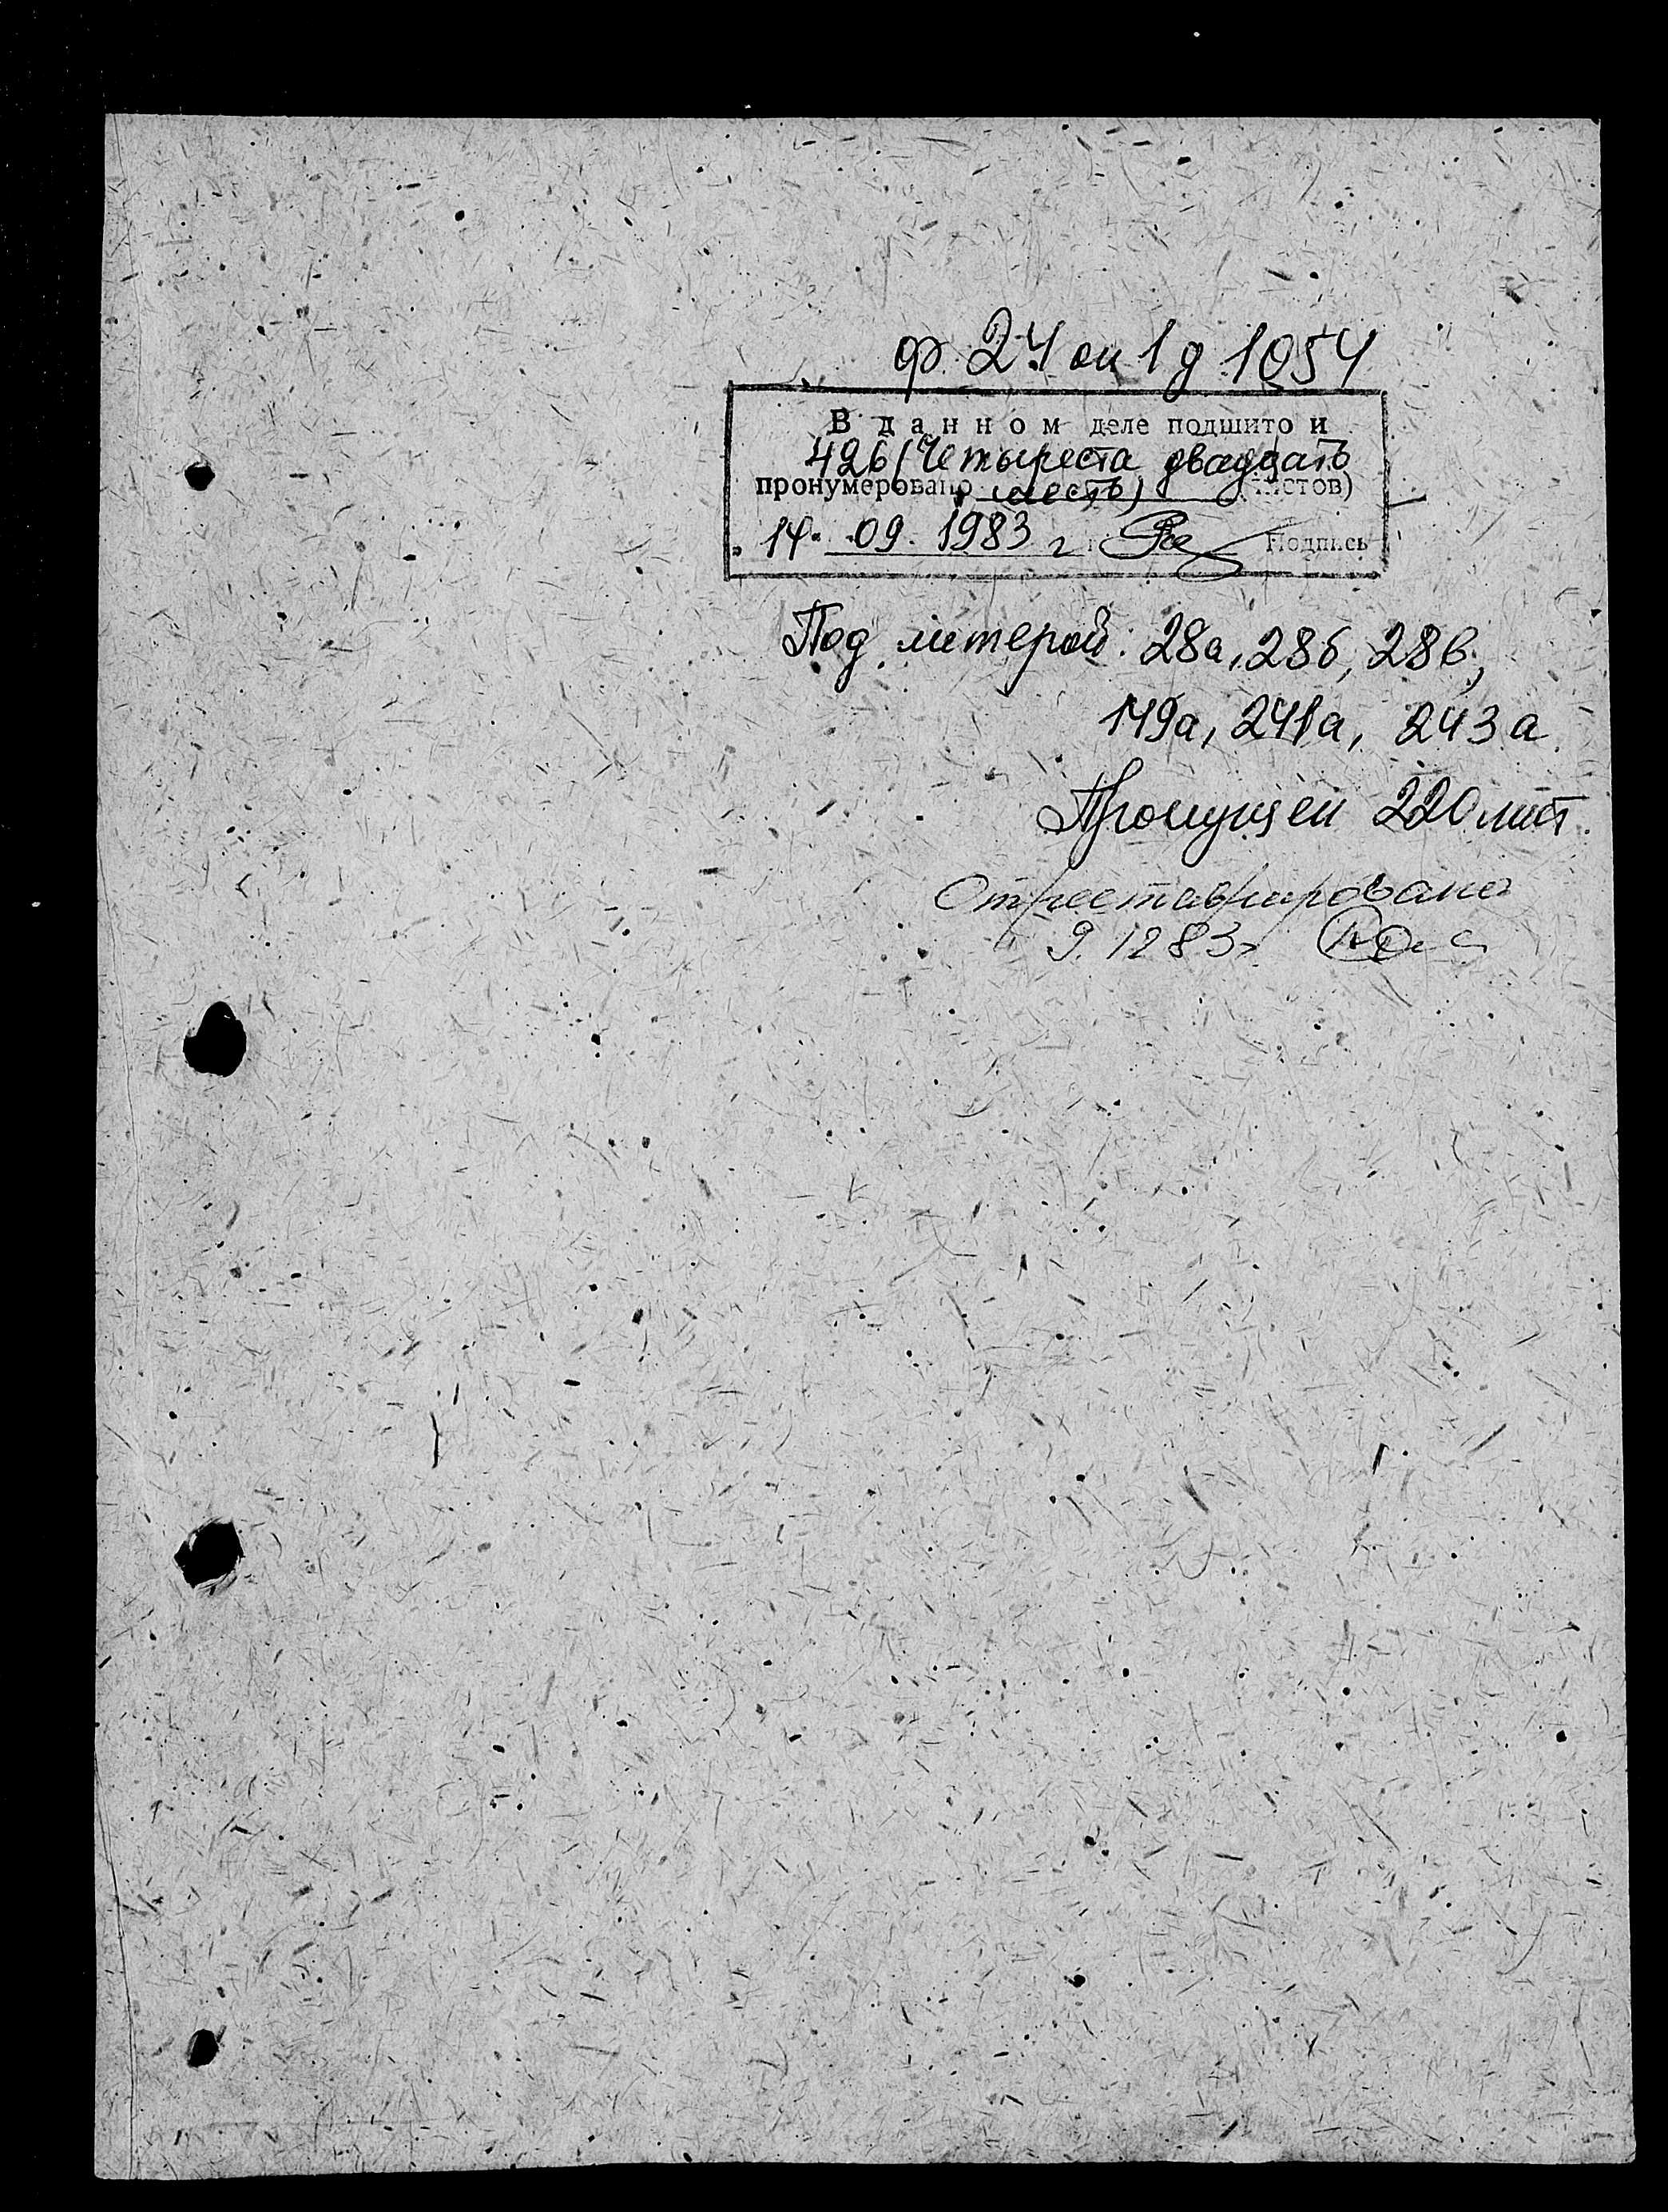 ф. 24 оп 1 д 1054
В данном деле подшито и
426 (Четыреста двадцать
пронумеровано шесть) (листов)
14. 09. 1983 г Подпись
Под литерой: 28а, 28б, 28в,
149а, 241а, 243а
Пропущен 220 лист.
Отреставрировано
9. 12 83г